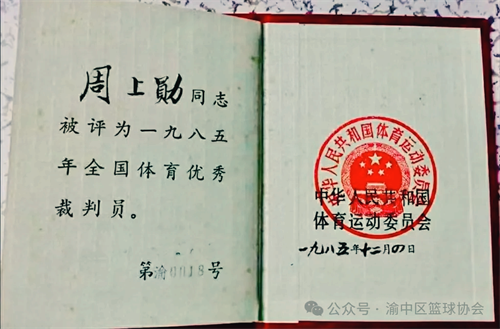 周上勋同志
被评为一九八五
年全国体育优秀
裁判员。
第渝0018号
中华人民共和国体育运动委员会
中华人民共和国
体育运动委员会
一九八五年十二月四日
公众号·渝中区篮球协会